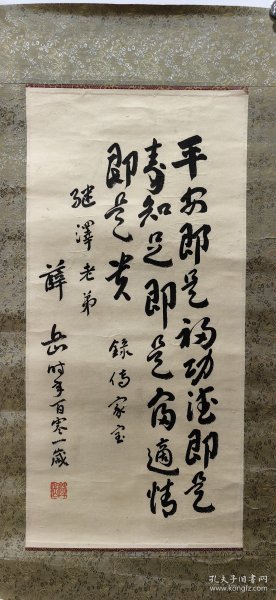 平安即是福功德即是
寿知足即是富適情
即是贵
錄傳家宝
继澤老弟
薛岳時年百零一歲
孔夫子旧书网